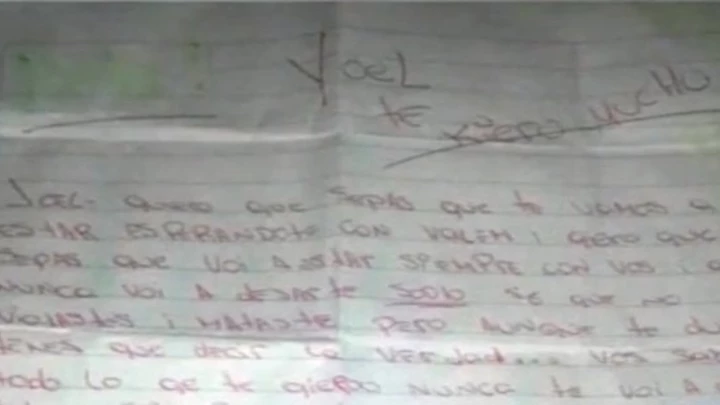 YOEL
TE QIERO MUCHO
YOEL. QUIERO QUE SEPAS QUE TE VAMOS A
ESTAR ESPERANDOTE CON i QERO QUE
SEPAS QUE VOI A ESTAR SIEMPRE CON VOS i
NUNCA VOI A DEJARTE SOLO SE QUE NO
VIOLASTES i MATASTE PERO AUNQUE TE
TENES QUE DECIR LA VERDAD.... VOS
TODO LO QE TE QIERO NUNCA TE VOI A